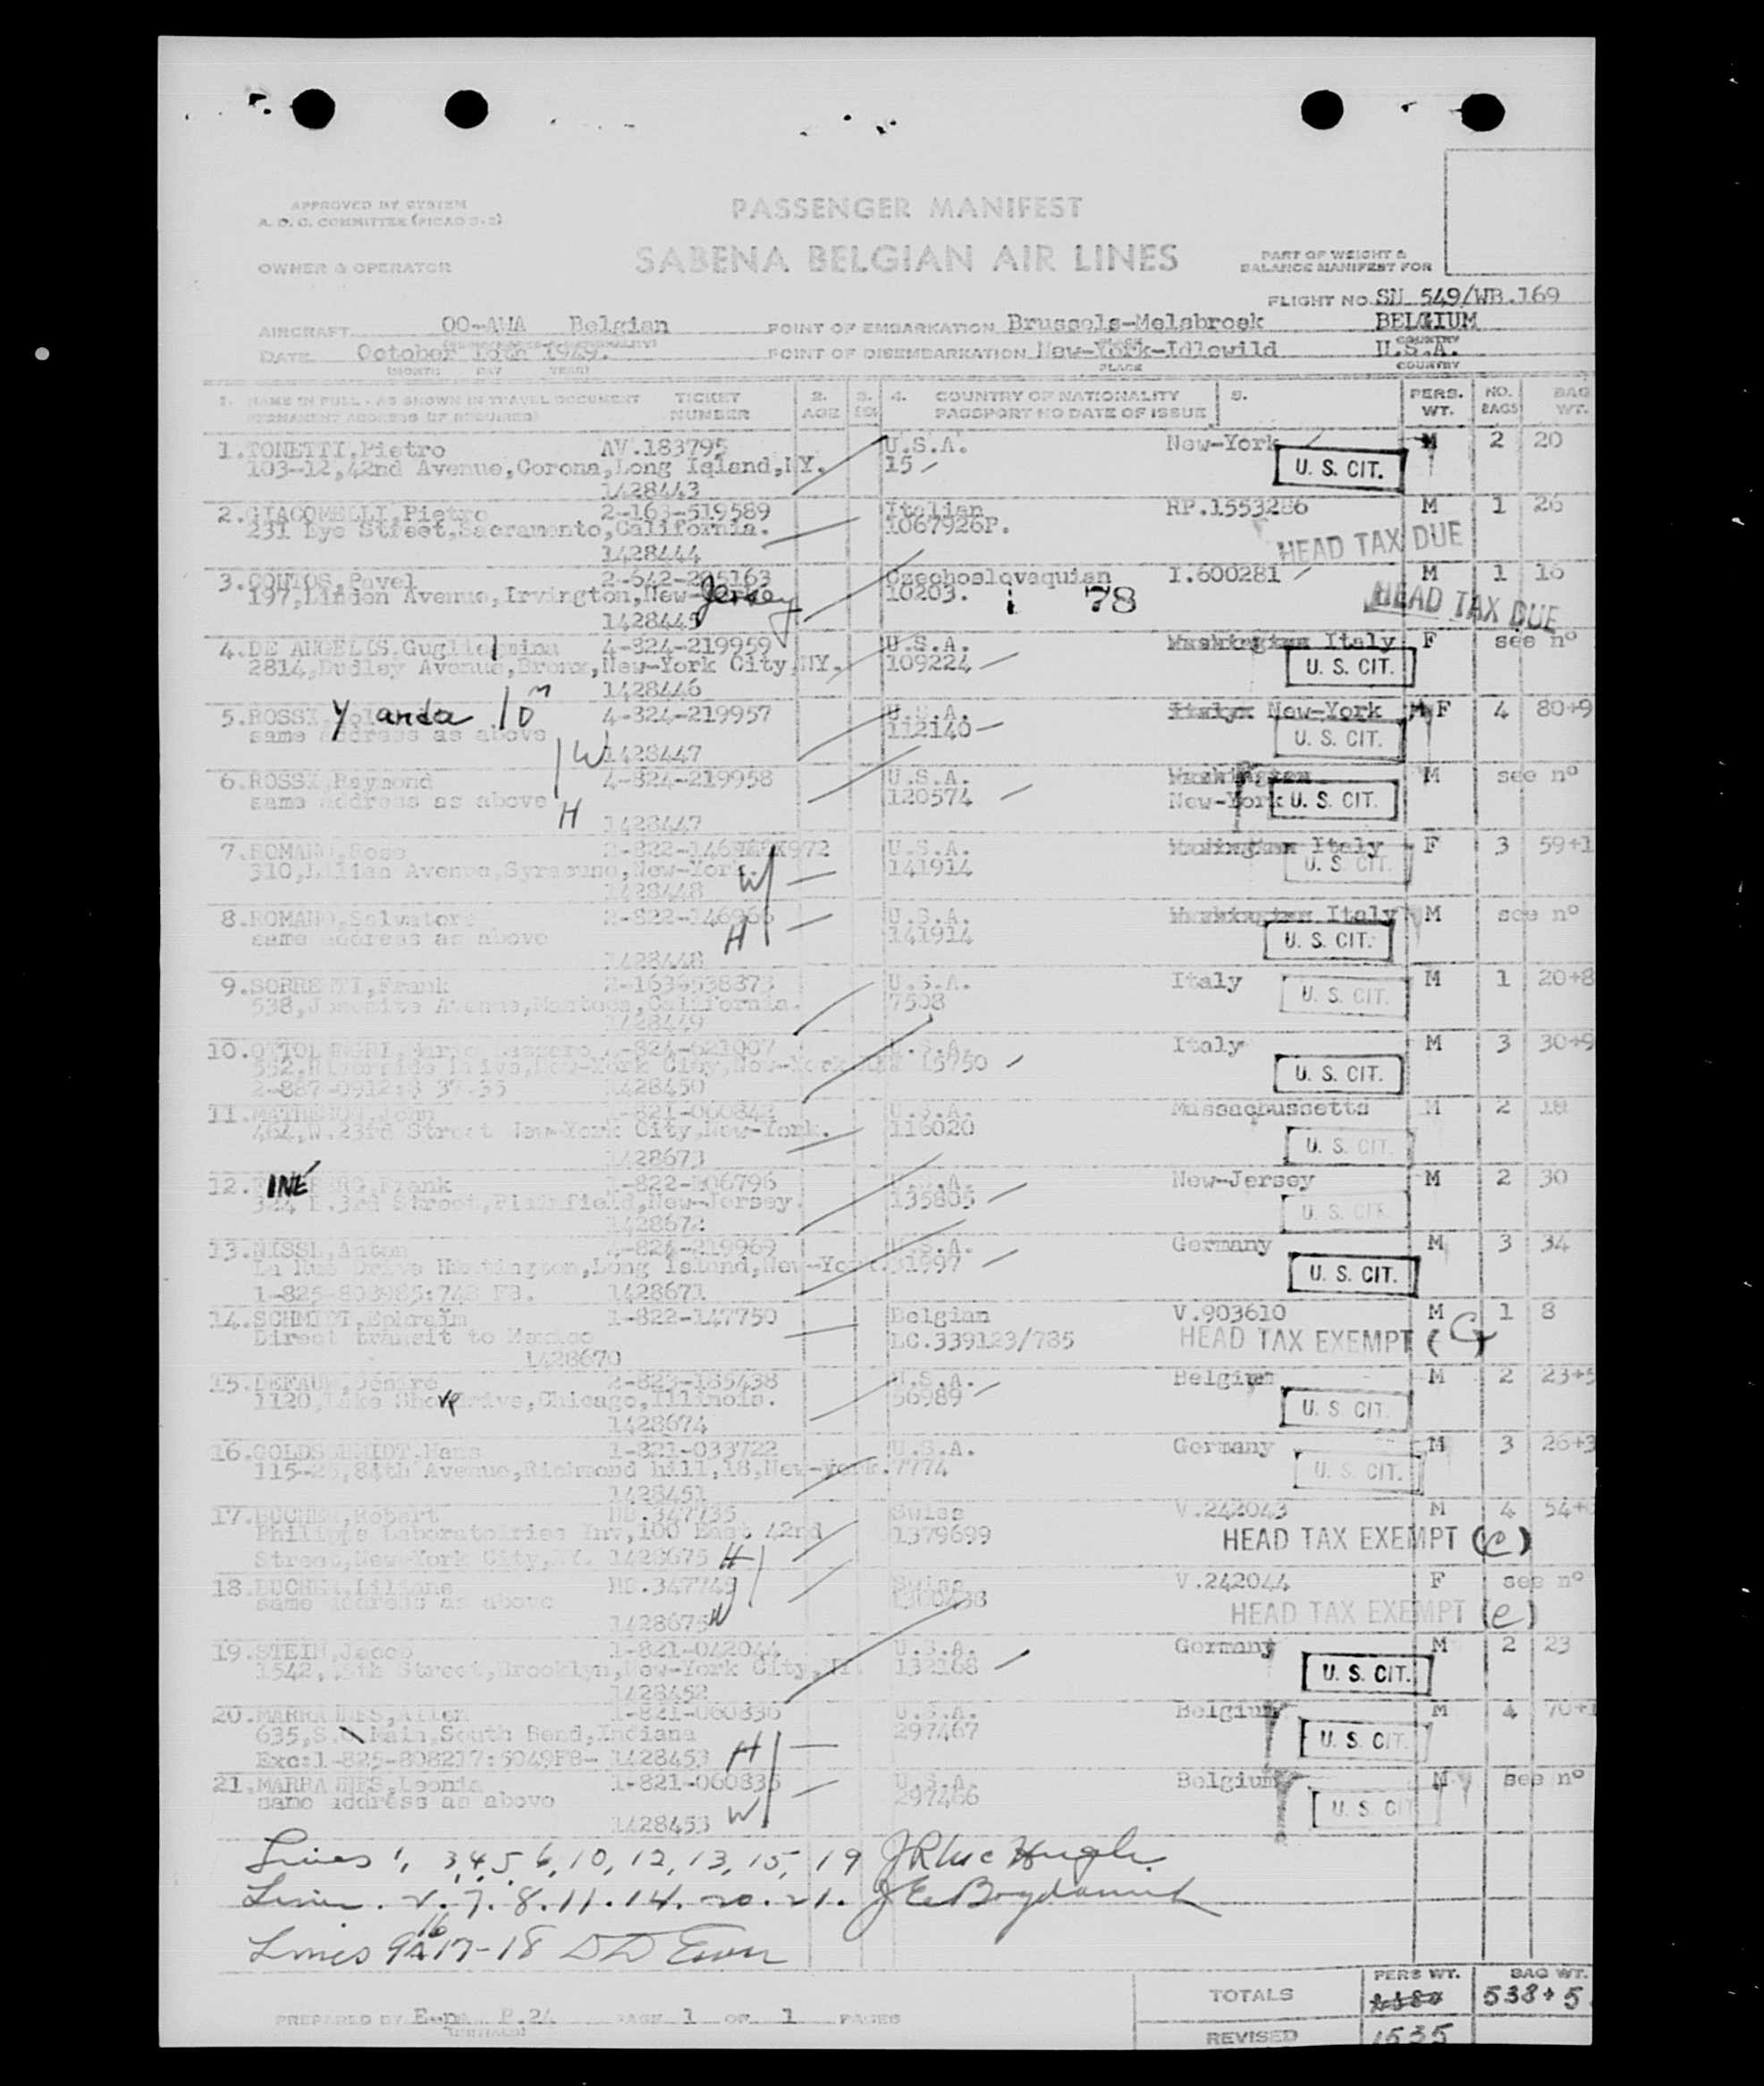 APPROVED BY SYSTEM
A.O.C. COMMITTEE (PICAO
PASSENGER MANIFEST
OWNER & OPERATOR
SABENA BELGIAN AIR LINES
PART OF WEIGHT &
BALANCE MANIFEST FOR
FLIGHT NO. SN 549/WB.169
AIRCRAFT OO-AWA Belgian
POINT OF EMBARKATION Brussels-Melsbroek BELGIUM
DATE October 1949.
POINT OF DISEMBARKATION New-York-Idlewild U.S.A.
(MONTH DAY YEAR) PLACE COUNTRY
1. NAME IN FULL - AS SHOWN IN TRAVEL DOCUMENT TICKET 2. 3. 4. COUNTRY OF NATIONALITY 5. PERS. NO. BAG
PERMANENT ADDRESS (IF REQUIRED) NUMBER AGE SEX PASSPORT NO DATE OF ISSUE WT. BAGS WT.
1. TONETTI,Pietro AV.183795 U.S.A. New-York M 2 20
103-12,42nd Avenue,Corona,Long Iqland,NY. 15 U. S. CIT.
1428443
2. GIACOMELLI,Pietro 2-163-519589 Italian RP.1553286 M 1 26
231 Eye Street,Sacramento,California. 1067926P. HEAD TAX DUE
1428444
3. Pavel 2-642-295163 Czechoslovaquian I.600281 M 1 16
197,Linden Avenue,Irvington,New-Jersey 10203. 78 HEAD TAX DUE
1428445
4. DE ANGELIS,Guglielmina 4-824-219959 U.S.A. Italy F see nº
2814,Dudley Avenue,Bronx,New-York City,NY. 109224 U. S. CIT.
1428446
5. ROSSI, Yolanda 4-324-219957 U.S.A. New-York F 4 80+9
same address as above 112140 U. S. CIT.
W 1428447
6. ROSSI,Raymond 4-824-219958 U.S.A. Washington M see nº
same address as above 120574 New-York U. S. CIT.
H 1428447
7. ROMANO,Rose U.S.A. Italy F 3 59+1
310,Lilian Avenue,Syracuse,New-York. W 141914 U. S. CIT.
1428448
8. ROMANO,Salvatore 2-822-146966 U.S.A. Washington Italy M see nº
same address as above H 141914 U. S. CIT.
1428448
9. SORRENTI,Frank 2-1634538373 U.S.A. Italy M 1 20+8
538, Avenue,Manteca,California. 7508 U. S. CIT.
1428449
10. 4-824-621007 U.S.A. Italy M 3 30+9
552,Riverside Drive,New-York City,New-York 15750 U. S. CIT.
1428450
11. John 1-821-060842 U.S.A. Massachussetts M 2 18
464,W.23rd Street New-York City,New-York. 116020 U. S. CIT.
1428673
12. Frank 1-822-106796 U.S.A. New-Jersey M 2 30
324 E.3rd Street,Plainfield,New-Jersey. 135805 U. S. CIT.
1428672
13. NISSL,Anton 4-824-219969 U.S.A. Germany M 3 34
La Rue Drive Huntington,Long Island,New-York. 31997 U. S. CIT.
1428671
14. SCHMIDT,Ephraïm 1-822-147750 Belgian V.903610 M 1 8
Direct transit to Mexico LC.339123/785 HEAD TAX EXEMPT (C)
1428670
15. DEFAUW,Désiré 2-823-185438 U.S.A. Belgium M 2 23+5
1120,Lake Shore Drive,Chicago,Illinois. 56989 U. S CIT.
1428674
16. GOLDSCHMIDT,Hans 1-821-033722 U.S.A. Germany M 3 26+3
115-25,84th Avenue,Richmond hill,18,New-york. 7774 U. S. CIT.
1428451
17. Robert HD.347735 Suiss V.242043 M 4 54+
Philipps Laboratoiries Inv,100 East 42nd 1379699 HEAD TAX EXEMPT (c)
Street,New-York City,NY. 1428675 H
18. Liliane HD.347749 Suiss V.242044 F see nº
same address as above 1360438 HEAD TAX EXEMPT (e)
1428675 W
19. STEIN,Jacob 1-821-042044 U.S.A. Germany M 2 23
Street,Brooklyn,New-York City, 132168 U. S. CIT.
1428452
20. Allen 1-821-060836 U.S.A. Belgium M 4 70+1
635,S. Main,South Bend,Indiana 297467 U. S. CIT.
Exc:1-825-808217:5049FB- 1428453 H
21. Leonie 1-821-060835 U.S.A. Belgium M see nº
same address as above 297466 U. S. CIT
1428453 W
Lines 1, 3,4,5 6, 10, 12, 13, 15, 19
Lines . 2. 7. 8. 11. 14. 20. 21.
Lines 9, 16 17-18
TOTALS PERS WT. BAG WT.
538+5
PREPARED BY P.24 PAGE 1 OF 1 PAGES
REVISED 1535